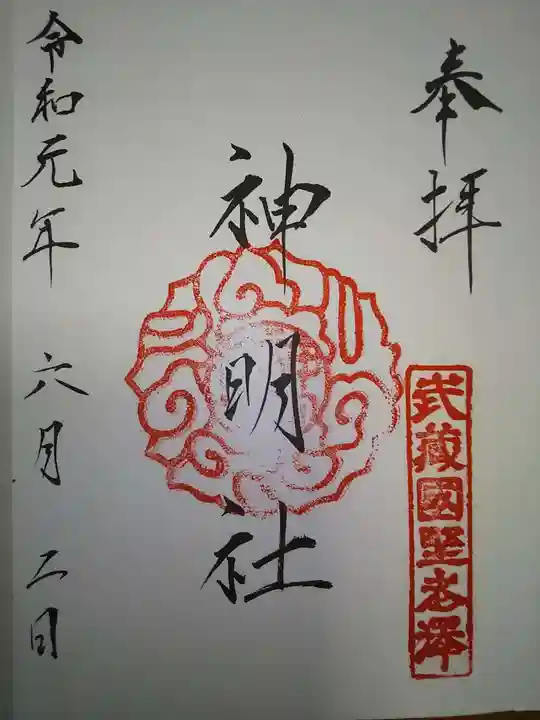 奉拝
武蔵國野老澤
神明社
令和元年 六月 二日